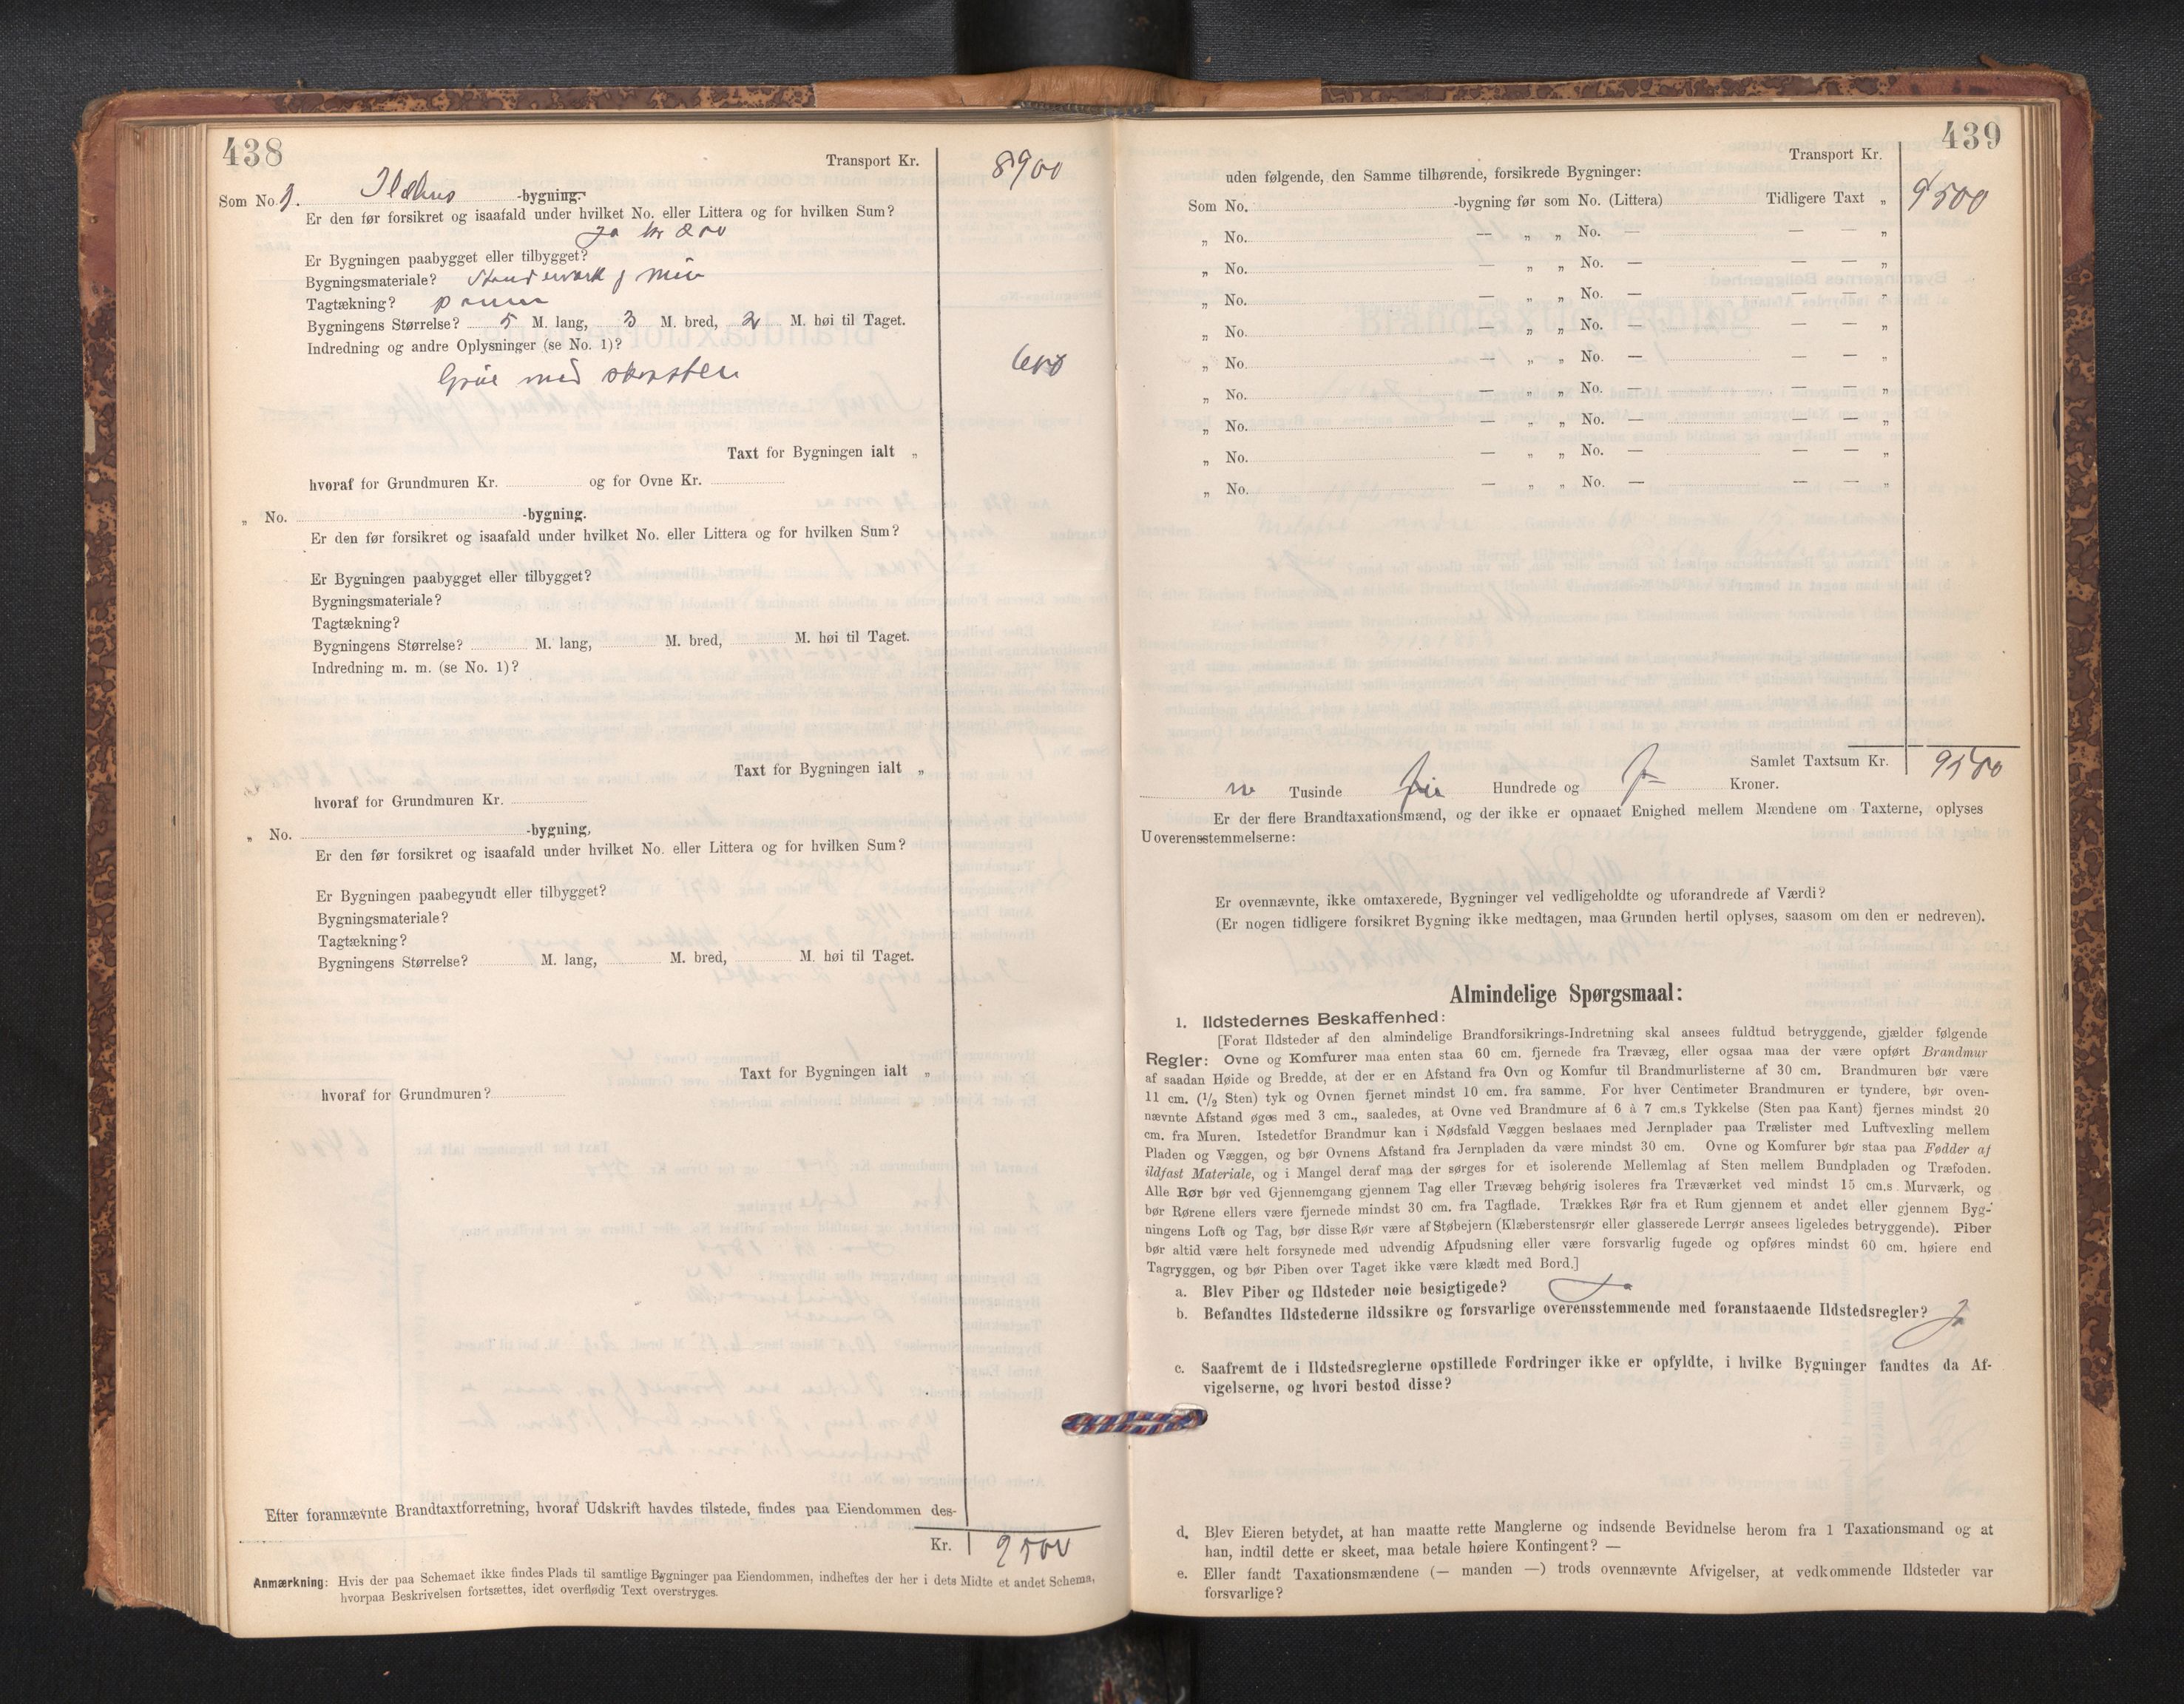 438
Transport Kr. 8900
Som No. 3. Ildhus -bygning.
Er den før forsikret og isaafald under hvilket No. eller Littera og for hvilken Sum?
Ja kr 200
Er Bygningen paabygget eller tilbygget?
Bygningsmateriale? Standerverk, mur
Tagtækning? panner
Bygningens Størrelse? 5 M. lang, 3 M. bred, 2 M. høi til Taget.
Indredning og andre Oplysninger (se No. 1)?
Grue med skorsten 600
Taxt for Bygningen ialt „
hvoraf for Grundmuren Kr. og for Ovne Kr.
„ No. -bygning.
Er den før forsikret og isaafald under hvilket No. eller Littera og for hvilken Sum?
Er Bygningen paabygget eller tilbygget?
Bygningsmateriale?
Tagtækning?
Bygningens Størrelse? M. lang, M. bred, M. høi til Taget.
Indredning m. m. (se No. 1)?
Taxt for Bygningen ialt „
hvoraf for Grundmuren Kr.
„ No. -bygning,
Er den før forsikret og isaafald under hvilket No. eller Littera og for hvilken Sum?
Er Bygningen paabegyndt eller tilbygget?
Bygningsmateriale?
Tagtækning?
Bygningens Størrelse? M. lang, M. bred, M. høi til Taget.
Taxt for Bygningen ialt „
hvoraf for Grundmuren?
Efter forannævnte Brandtaxtforretning, hvoraf Udskrift havdes tilstede, findes paa Eiendommen des-
Kr. 9500
Anmærkning: Hvis der paa Schemaet ikke findes Plads til samtlige Bygninger paa Eiendommen, indheftes der her i dets Midte et andet Schema,
hvorpaa Beskrivelsen fortsættes, idet overflødig Text overstryges.
439
Transport Kr.
uden følgende, den Samme tilhørende, forsikrede Bygninger:
Som No. -bygning før som No. (Littera) Tidligere Taxt „ 9500
„ No. — „ „ No. — — — „
„ No. — „ „ No. — — — „
„ No. — „ „ No. — — — „
„ No. — „ „ No. — — — „
„ No. — „ „ No. — — — „
„ No. — „ „ No. — — — „
„ No. — „ „ No. — — — „
„ No. — „ „ No. — — — „
„ No. — „ „ No. — — — „
Samlet Taxtsum Kr. 9500
ni Tusinde fem Hundrede og Kroner.
Er der flere Brandtaxationsmænd, og der ikke er opnaaet Enighed mellem Mændene om Taxterne, oplyses
Uoverensstemmelserne:
Er ovennævnte, ikke omtaxerede, Bygninger vel vedligeholdte og uforandrede af Værdi?
(Er nogen tidligere forsikret Bygning ikke medtagen, maa Grunden hertil oplyses, saasom om den er nedreven).
Almindelige Spørgsmaal:
1. Ildstedernes Beskaffenhed:
[Forat Ildsteder af den almindelige Brandforsikrings-Indretning skal ansees fuldtud betryggende, gjælder følgende
Regler: Ovne og Komfurer maa enten staa 60 cm. fjernede fra Trævæg, eller ogsaa maa der være opført Brandmur
af saadan Høide og Bredde, at der er en Afstand fra Ovn og Komfur til Brandmurlisterne af 30 cm. Brandmuren bør være
11 cm. (1/2 Sten) tyk og Ovnen fjernet mindst 10 cm. fra samme. For hver Centimeter Brandmuren er tyndere, bør oven-
nævnte Afstand øges med 3 cm., saaledes, at Ovne ved Brandmure af 6 à 7 cm.s Tykkelse (Sten paa Kant) fjernes mindst 20
cm. fra Muren. Istedetfor Brandmur kan i Nødsfald Væggen beslaaes med Jernplader paa Trælister med Luftvexling mellem
Pladen og Væggen, og bør Ovnens Afstand fra Jernpladen da være mindst 30 cm. Ovne og Komfurer bør staa paa Fødder af
ildfast Materiale, og i Mangel deraf maa der sørges for et isolerende Mellemlag af Sten mellem Bundpladen og Træfoden.
Alle Rør bør ved Gjennemgang gjennem Tag eller Trævæg behørig isoleres fra Træværket ved mindst 15 cm.s Murværk, og
bør Rørene ellers være fjernede mindst 30 cm. fra Tagflade. Trækkes Rør fra et Rum gjennem et andet eller gjennem Byg-
ningens Loft og Tag, bør disse Rør være af Støbejern (Klæberstensrør eller glasserede Lerrør ansees ligeledes betryggende). Piber
bør altid være helt forsynede med udvendig Afpudsning eller være forsvarlig fugede og opføres mindst 60 cm. høiere end
Tagryggen, og bør Piben over Taget ikke være klædt med Bord.]
a. Blev Piber og Ildsteder nøie besigtigede? Ja
b. Befandtes Ildstederne ildssikre og forsvarlige overensstemmende med foranstaaende Ildstedsregler? Ja
c. Saafremt de i Ildstedsreglerne opstillede Fordringer ikke er opfyldte, i hvilke Bygninger fandtes da Af-
vigelserne, og hvori bestod disse?
d. Blev Eieren betydet, at han maatte rette Manglerne og indsende Bevidnelse herom fra 1 Taxationsmand og at
han, indtil dette er skeet, maa betale høiere Kontingent? —
e. Eller fandt Taxationsmændene (— manden —) trods ovennævnte Afvigelser, at vedkommende Ildsteder var
forsvarlige?